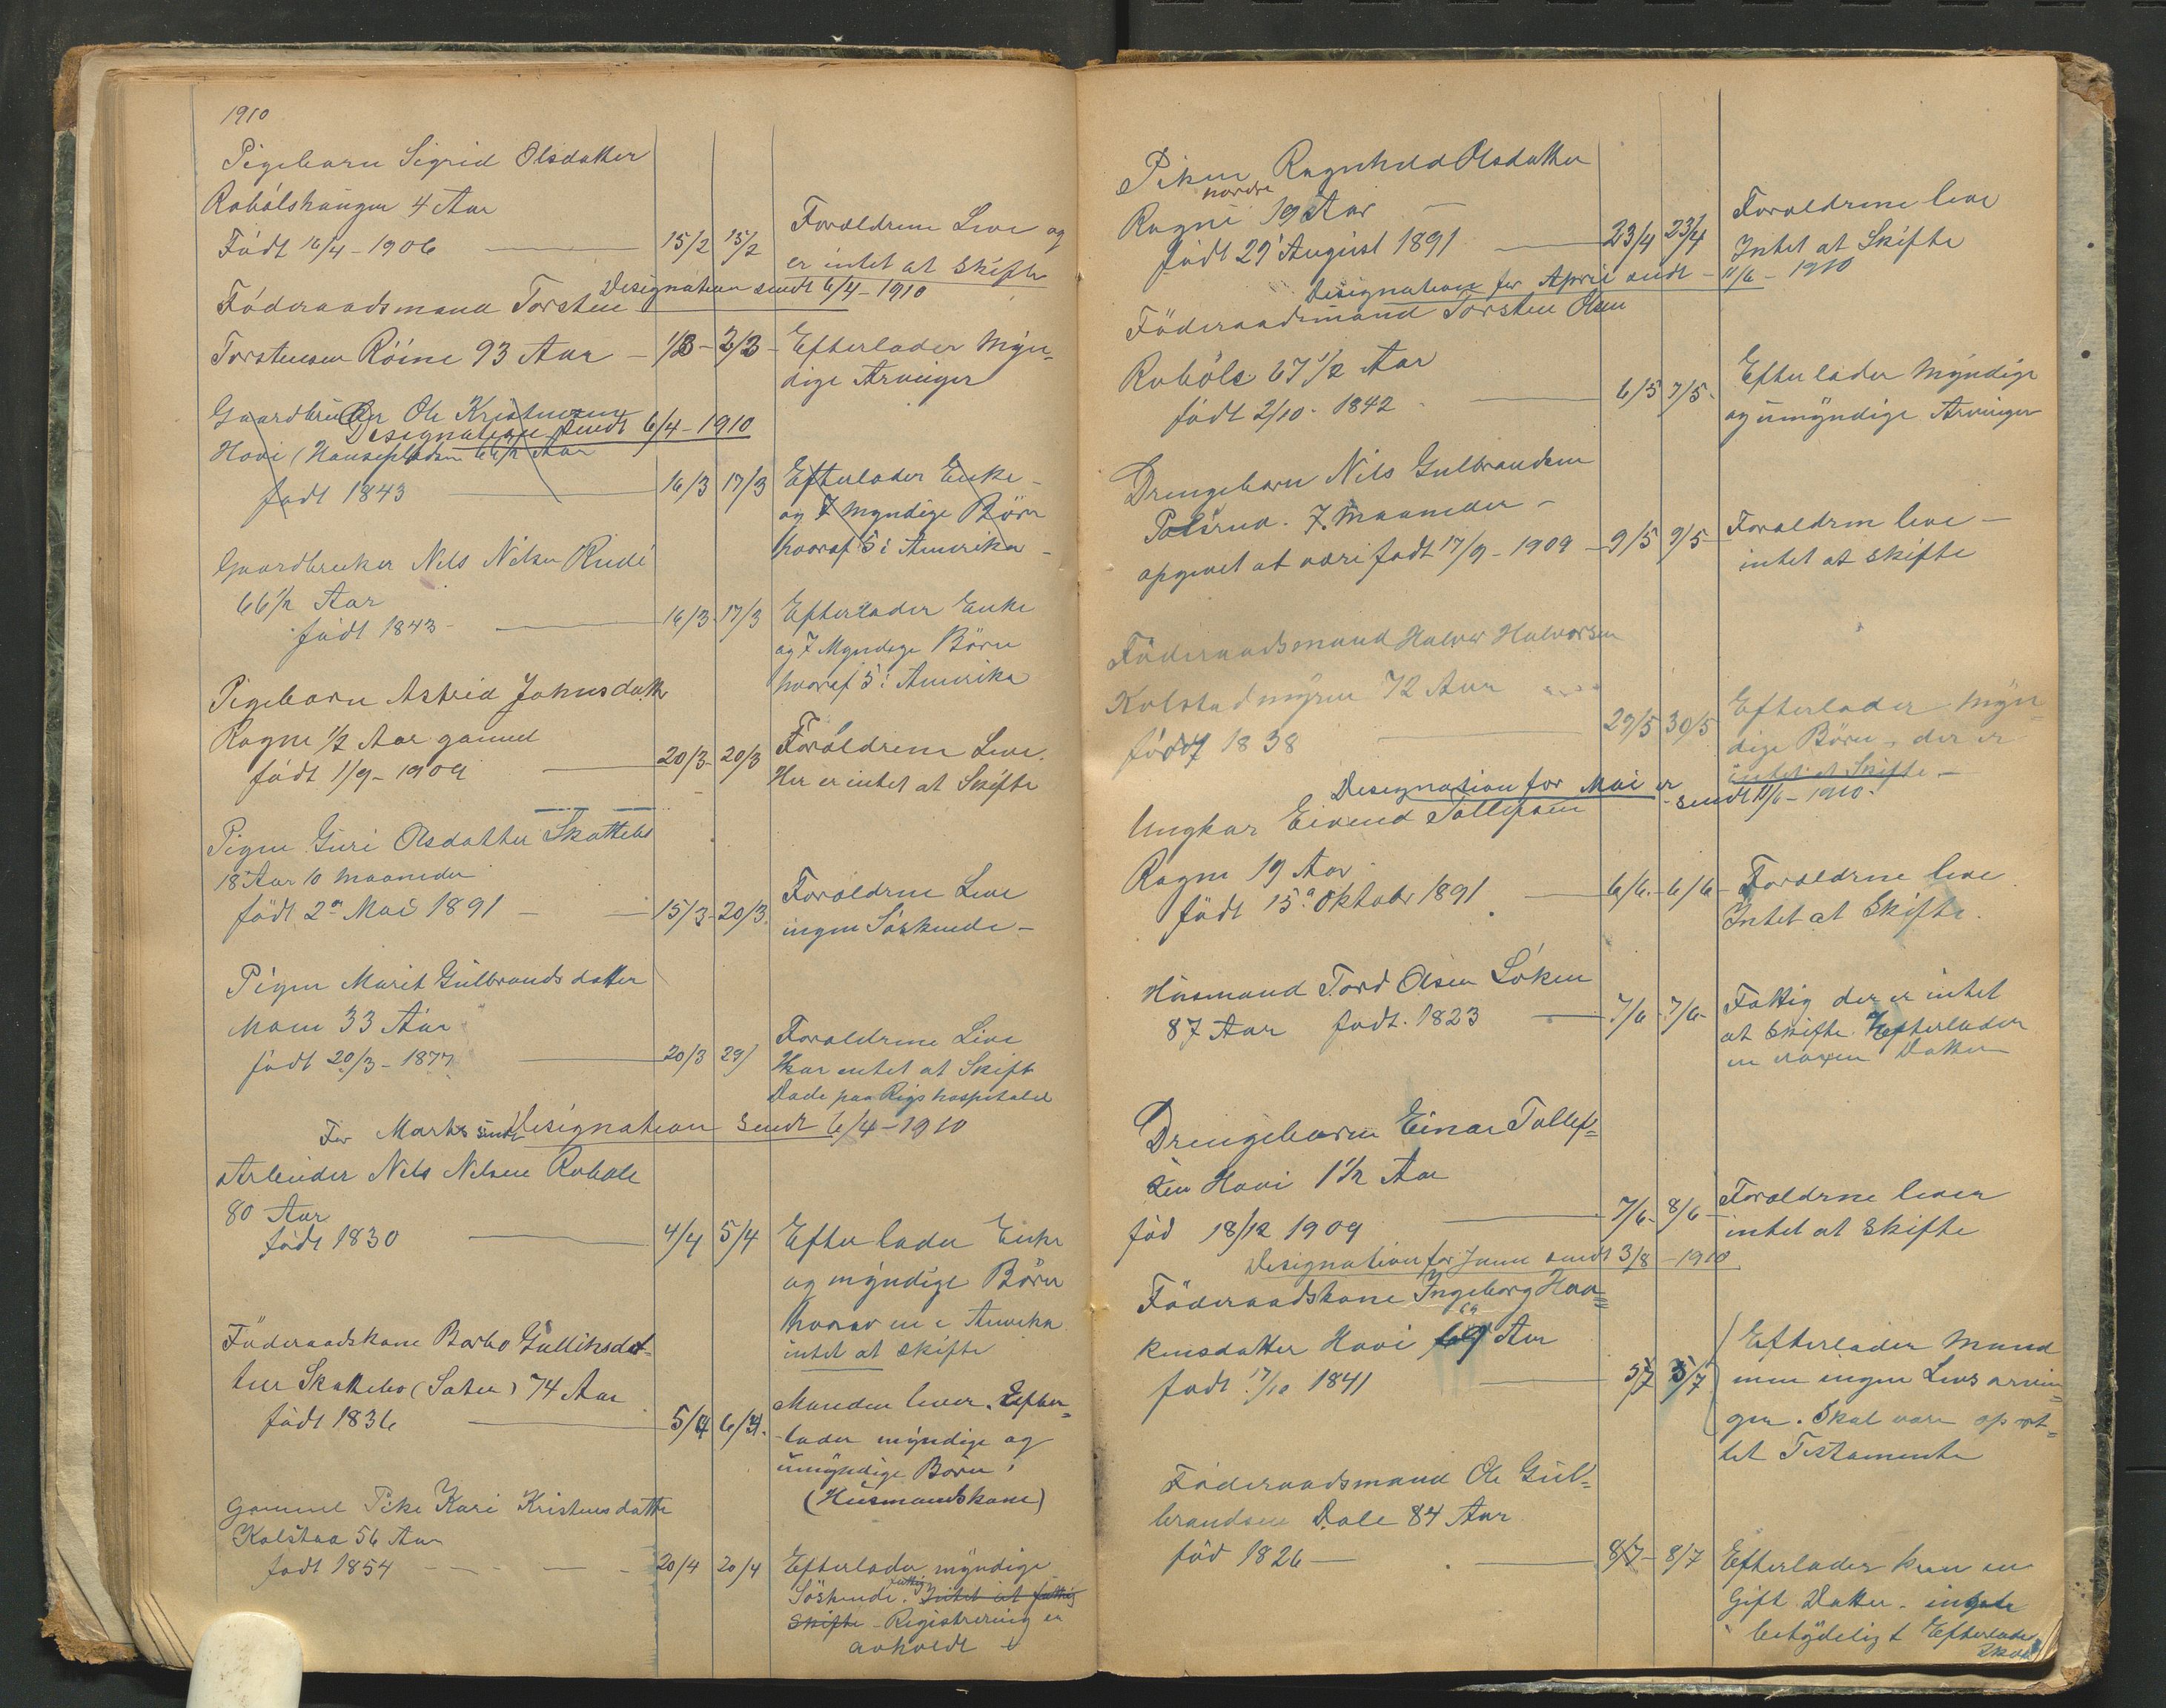 1910
Pigebarn Sigrid Olsdatter
Robölshaugen 4 Aar
Født 16/4 - 1906 15/2 15/2 Foreldrene Leve og
er intet at skifte
Designation sendt 6/4 - 1910
Föderaadsmand Torsten
Torstensen Röine 93 Aar - 1/3 - 2/3 - Efterlader Myn-
dige Arvinger
Gaardbruker Ole Kristensen
Designation sendt 6/4 - 1910
Hovi 66 1/2 Aar
født 1843 16/3 17/3 Efterlader Enke -
og 7 myndige Börn
hvoraf 5 i Amerika -
Gaardbruker Nils Nilsen Rudi
66 1/2 Aar
født 1843 - 16/3 17/3 Efterlader Enke
og 7 Myndige Börn
hvoraf 5 i Amerika
Pigebarn Astrid Johnsdatt
Rogne 1/2 Aar gammel
født 1/9 - 1909 20/3 - 20/3 Foröldrene Leve.
Her er intet at Skifte
Pigen Guri Olsdatter Skattebo
18 Aar 10 maaneder
født 2n Mai 1891 - 15/3 - 20/3. Foröldrene Leve
ingen Söskende -
Pigen Marit Gulbrandsdatter
Moen 33 Aar
født 20/3 - 1877 20/3 29/ Foraldrene Leve
Har intet at Skifte
Döde paa Rigshospitalet
For Marts sendt Designation sendt 6/4 - 1910
Arbeider Nils Nilsen Robøle
80 Aar
født 1830 4/4 5/4 Efterlader Enke
og myndige Börn
hvorav en i Amerika
intet at skifte
Föderaadskone Barbo Gulliksdat-
ter Skattebo (Sater) 74 Aar
født 1836 5/4 6/4. Manden lever. Efter-
lader myndige og
umyndige Börn.
(Husmandskone)
Gammel Pike Kari Kristensdatter
Kolstaa 56 Aar
født 1854 - 20/4 20/4 Efterlader myndige
fattig
Söskende. Intet at fattig
Skifte - Registrering er
avholdt
Piken Ragnhild Olsdatter
nordre
Rogne 19 Aar -
født 29 August 1891 23/4 23/4 Foreldrene leve
Intet at Skifte
Designation for April sendt - 11/6 - 1910
Föderaadsmand Torsten Olsen
Robøle 67 1/2 Aar
født 2/10 - 1842 6/5 7/5. Efterlader Myndige
og umyndige Arvinger
Drengebarn Nils Gulbrandsen
Polsrud. 7. Maaneder -
opgivet at være født 17/9 - 1909 - 9/5 9/5 - Foreldren leve -
intet at skifte
Föderaadsmand Halvor Halvorsen
Kolstadmyren 72 Aar
född 1838 29/5 30/5 Efterlader Myn-
dige Börn, der er
intet at Skifte -
Designation for Mai er
sendt 11/6 - 1910.
Ungkar Eivind Tollefsen
Rogne 19 Aar
født 15de Oktobr 1891 6/6. - 6/6 - Foreldrene leve
Intet at Skifte.
Husmand Tord Olsen Löken
87 Aar født. 1823 7/6 - 7/6 - Fattig der er intet
at skifte. Efterlader
en voxen Datter
Drengebarn Einar Tollef-
sen Hovi 1 1/2 Aar
född 18/12 1909 7/6 - 8/6 - Foreldrene lever
intet at skifte
Designation for Juni sendt 3/8 - 1910
Föderaadskone Ingeborg Haa-
69
kensdatter Hovi 69 Aar
født 17/10 1841 5/7 5/7 Efterlader Mand
men ingen Livsarvin-
ger. Skal være opret-
tet Testamente
Föderaadsmand Ole Gul-
brandsen Dale 84 Aar
född 1826 - 8/7 - 8/7 Efterlader kun en
Gift Datter - ingen
betydeligt Efterlade